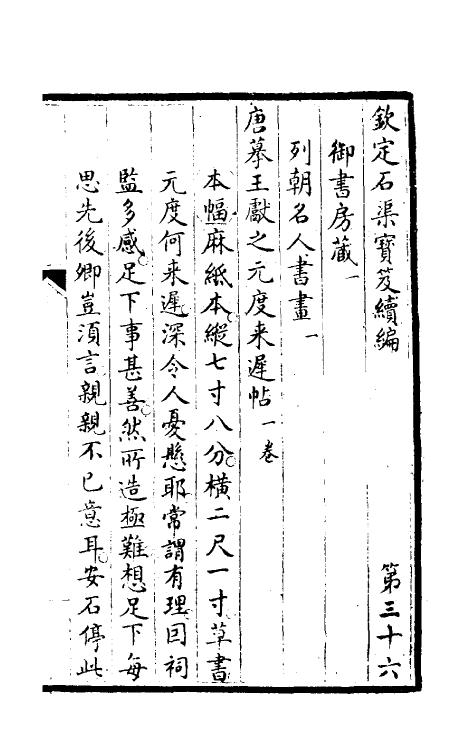 欽定石渠寶笈續編　第三十六
御書房藏一
列朝名人書畫一
唐摹王獻之元度来遲帖一卷
本幅麻紙本縱七寸八分橫二尺一寸草書
元度何来遲深令人憂懸耶常謂有理回祠
監多感足下事甚善然所造極難想足下每
思先後卿豈須言親親不已意耳安石停此